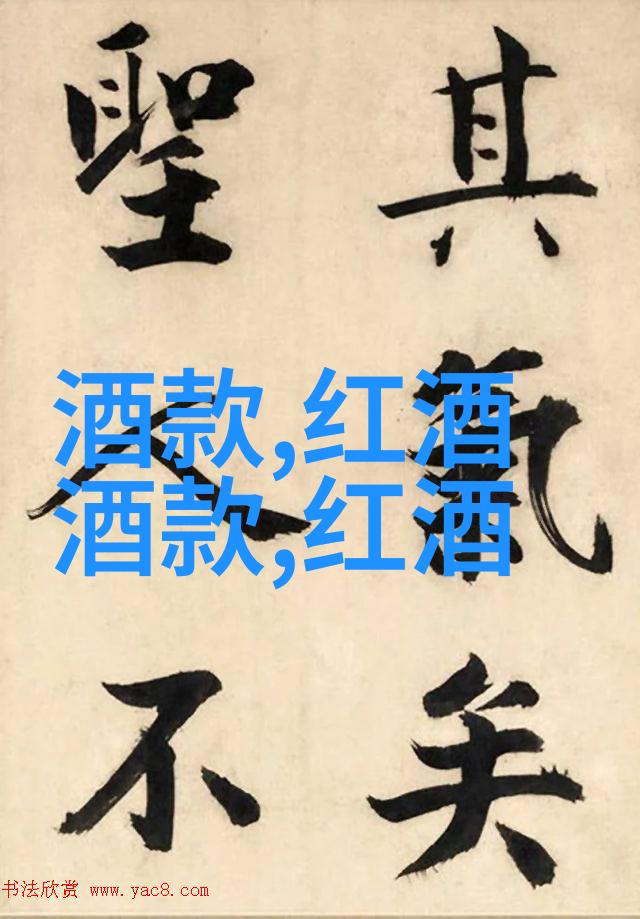 其氣矣
聖人不
酒款,红酒
酒款,红酒
书法欣赏 www.yac8.com